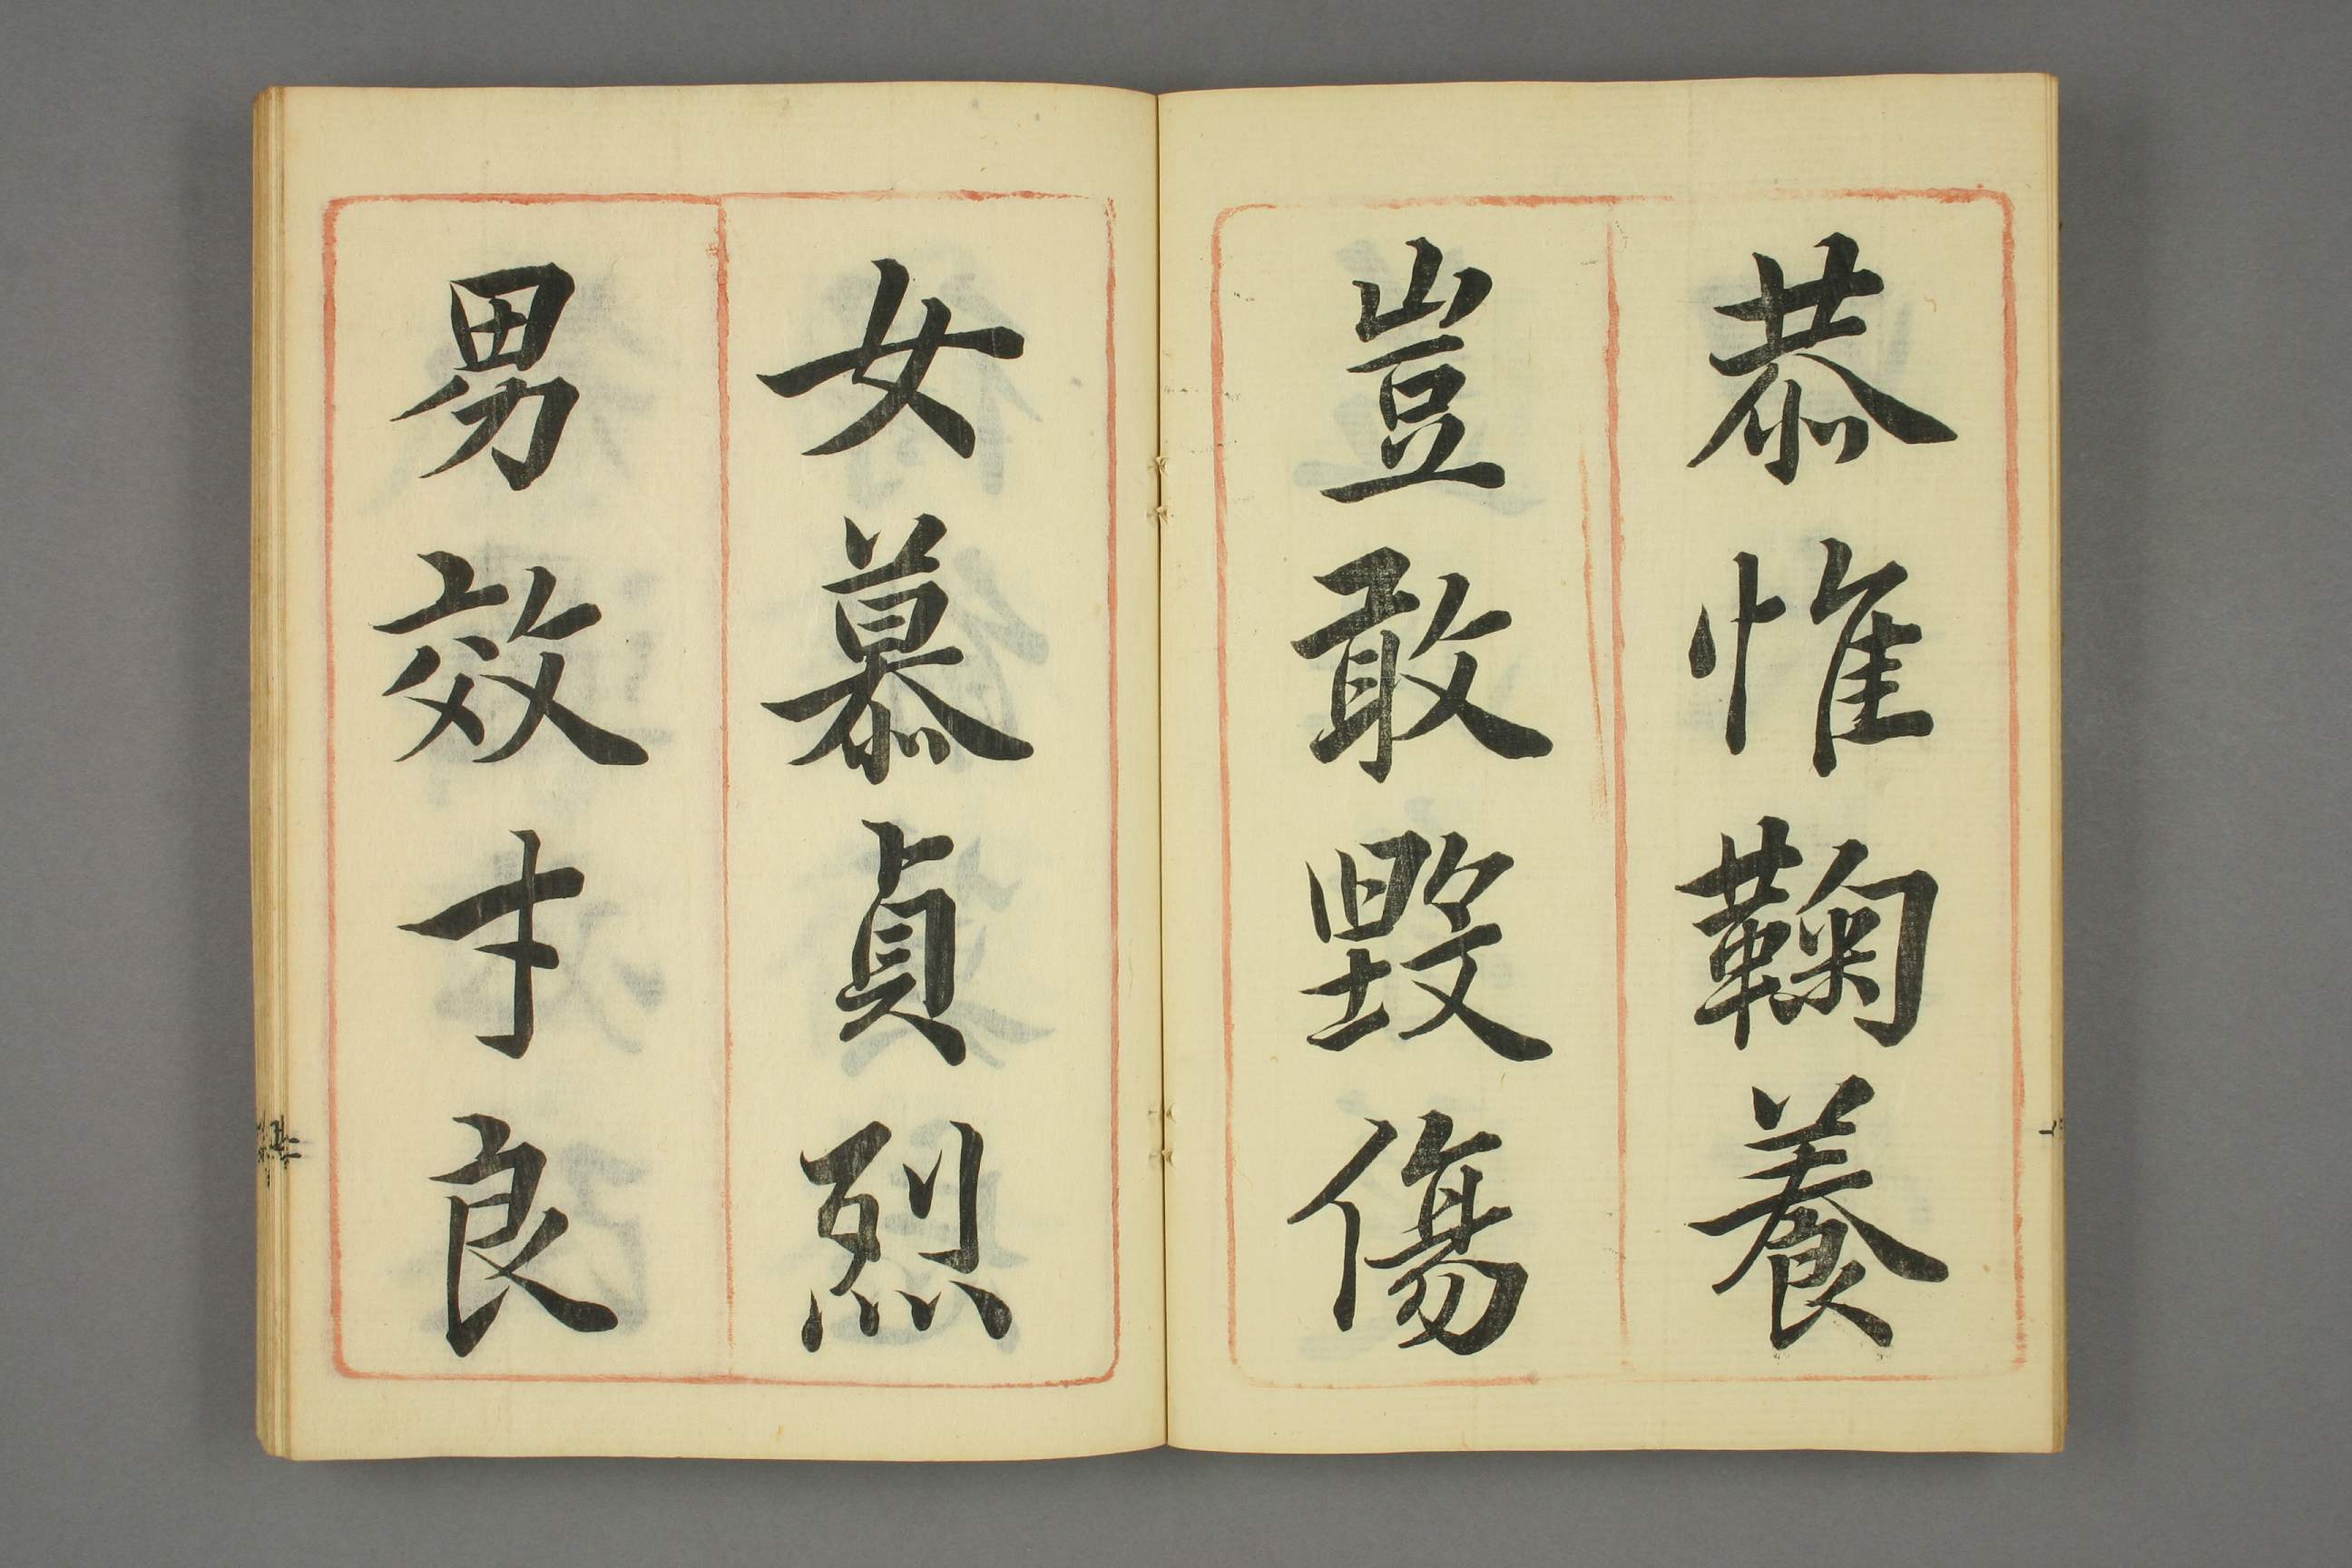 恭惟鞠養
豈敢毀傷
女慕貞烈
男效才良